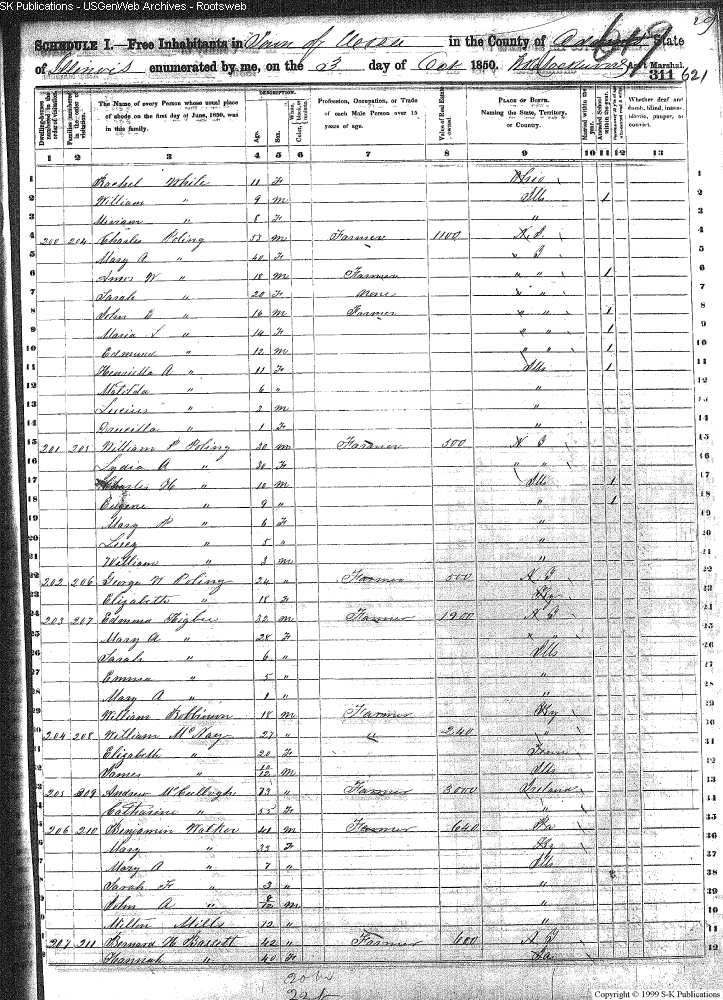 SK Publications - USGenWeb Archives - Rootsweb
29
SCHEDULE I.—Free Inhabitants in Town of in the County of State
of Illinois enumerated by me, on the 3 day of Oct 1850. Ass't Marshal.
311 621
Dwelling-houses numbered in the order of visitation.
Families numbered in the order of visitation.
The Name of every Person whose usual place of abode on the first day of June, 1850, was in this family.
DESCRIPTION.
Age.
Sex.
Color, White, black, or mulatto.
Profession, Occupation, or Trade of each Male Person over 15 years of age.
Value of Real Estate owned.
PLACE OF BIRTH. Naming the State, Territory, or Country.
Married within the year.
Attended School within the year.
Whether deaf and dumb, blind, insane, idiotic, pauper, or convict.
1 2 3 4 5 6 7 8 9 10 11 12 13
1 Rachel White 11 F Ohio 1
2 William " 9 m Ills 1 2
3 Miriam " 8 F " 3
4 200 204 Charles Poling 53 m Farmer 1100 N J 4
5 Mary A " 40 F " J 5
6 Amos W " 18 m Farmer " " 1 6
7 Sarah " 20 F None " " 7
8 John " 16 m Farmer " " 1 8
9 Maria L " 14 F " " 1 9
10 Edmund " 12 m " " 1 10
11 Henrietta A " 11 F Ills 1 11
12 Matilda " 6 " " 12
13 Lucius " 3 m " 13
14 Druscilla " 1 F " 14
15 201 205 William P Poling 30 m Farmer 500 N J 15
16 Lydia A " 30 F " " 16
17 Charles H " 10 m Ills 1 17
18 Eugene " 9 " " 1 18
19 Mary P " 6 F " 19
20 Lucy " 5 " " 20
21 William " 3 m " 21
22 202 206 George W Poling 24 " Farmer 500 N J
23 Elizabeth " 18 F Ky
24 203 207 Edmund Higbee 32 m Farmer 1900 N J
25 Mary A " 28 F " "
26 Sarah " 6 " Ills
27 Emma " 5 " "
28 Mary A " 1 " "
29 William Robbinson 18 m Farmer Ky
30 204 208 William McKay 27 " " 240 "
31 Elizabeth " 20 F Tenn
32 James " 10/12 m Ills
205 209 Andrew McCullough 73 " Farmer 3000 Ireland
Catharine " 55 F "
206 210 Benjamin Walker 41 m Farmer 640 Pa
Mary " 33 F Ky
Mary A " 7 " Ills
Sarah F " 3 " "
John A " m "
Milton Mills 12 " "
207 211 Bernard H Bassett 42 " Farmer 600 N J
Hannah " 40 F Pa
Copyright © 1999 S-K Publications